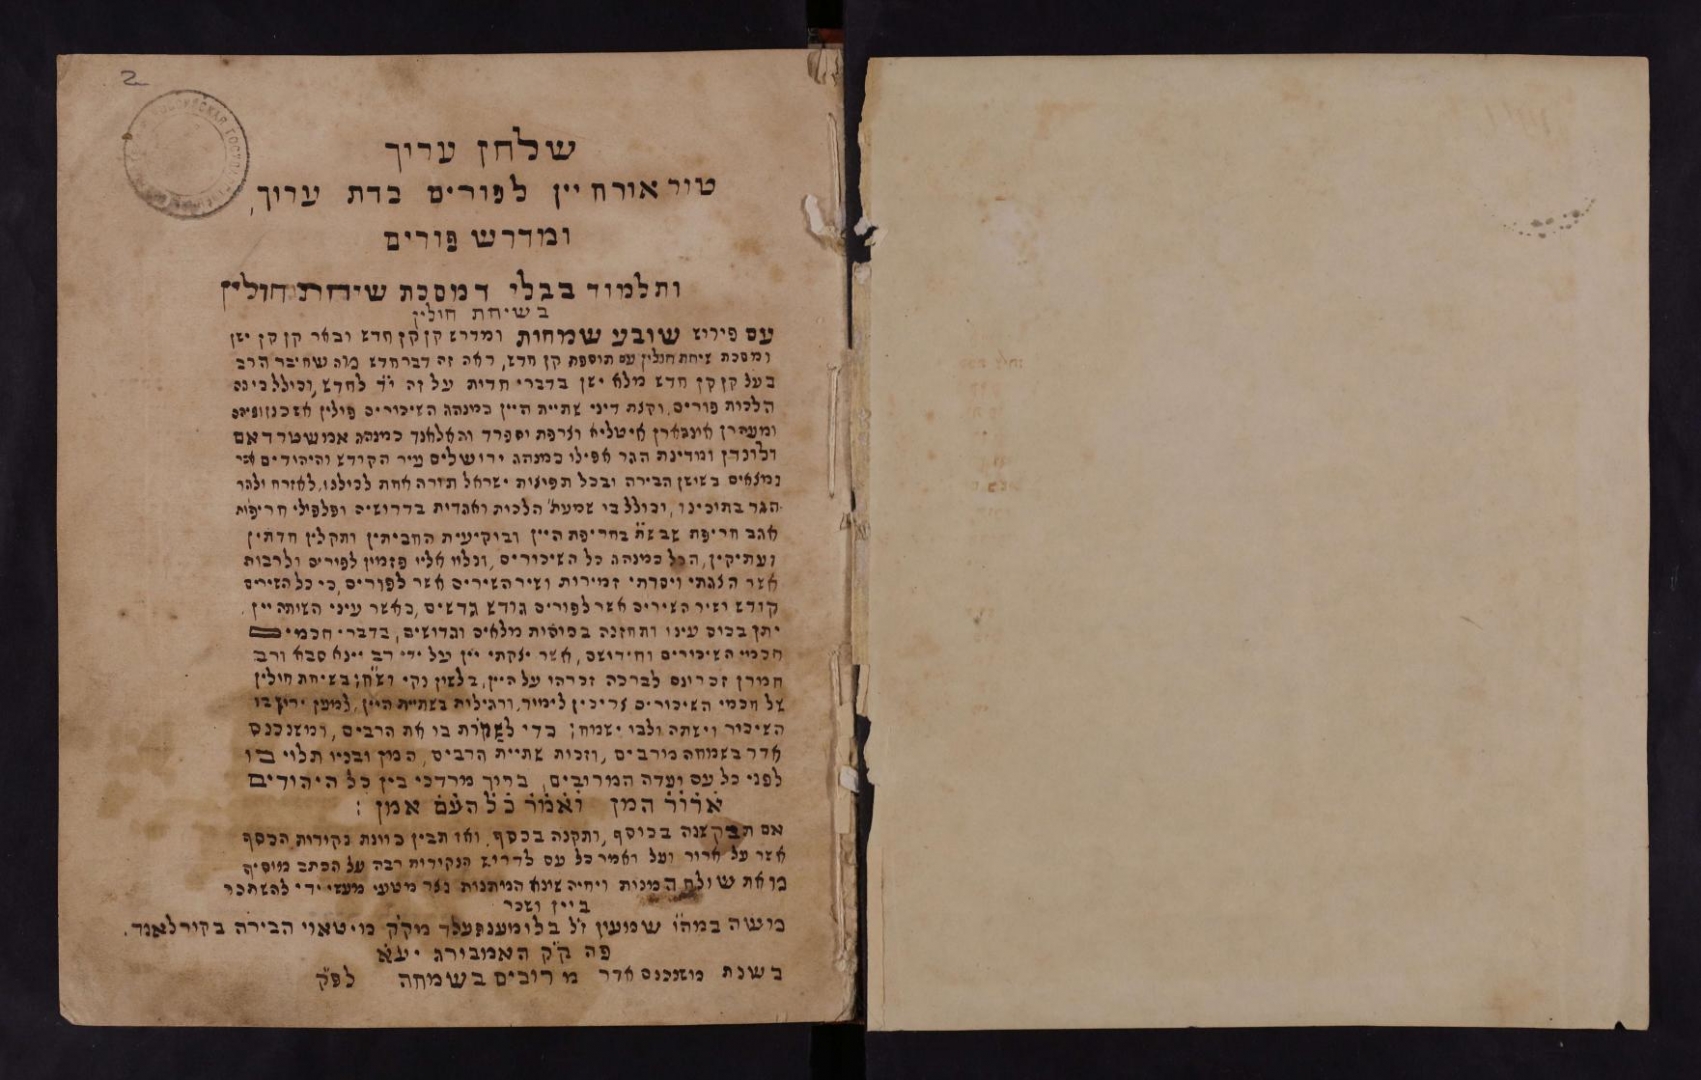 2
שלחן עריך
טור אורח יין לפורים כדת ערוך,
ומדרש פורים
ותלמוד בבלי דמסכת שיחת חולין
בשיחת חולין
עם פירוש שובע שמחות ומדרש קן קן חדש ובאר קן קן ישן
ומסכת שיחת חולין עם תוספת קן חדש, ראה זה דבר חדש מה שחיבר הרב
בעל קן קן חדש מלא ישן בדברי חדית על זה י״ד לחדש, וכולל בינה
הלכות פורים, וקצת דיני שתיית היין כמנהג השיכורים פולין אשכנז
ומעהרן אונגארן איטליא צרפת וספרד והאלאנד כמנהג אמשטרדאם
דלונדן ומדינת הגר אפילו כמנהג ירושלים עיר הקודש והיהודים אשר
נמצאים בשושן הבירה ובכל תפוצות ישראל תורה אחת לכולנו, לאזרח ולגר
הגר בתוכינו, וכולל בו שמעת׳ הלכות ואגדות בדרושיה ופלפולי חריפות
אגב חריפת שבשת׳ בחריפת היין ובוקיעית החביתין ותקלין חדתין
ועתיקין, הכל כמנהג כל השיכורים, ונלוו אליו פזמון לפורים ולרבות
אשר הצגתי ויסדתי זמירות ושיר השירים אשר לפורים, כי כל השירים
קודש ושיר השירים אשר לפורים גודש גדשים, כאשר עיני השותה יין
יתן בכוס עינו ותחזנה בכוסות מלאים וגדושים, בדברי חכמי
חכמי השיכורים וחידושם, אשר יצקתי יין על ידי רב יינא סבא ורב
חמרן זכרונם לברכה זכרהו על היין, בלשון נקי ושיח בשיחת חולין
של חכמי השיכורים צריכין לימוד, ורגילות בשתיית היין, למען ירוץ בו
השיכור וישתה ולבו ישמח; כדי לשכרות בו את הרבים, ומשנכנס
אדר בשמחה מורבים, וזכות שתיית הרבים, המן ובניו תלוי בו
לפני כל עם ועדה המרובים, ברוך מרדכי בין כל היהודים
ארור המן ואמר כל העם אמן :
אם תבקשנה בכוסף, ותקנה בכסף, ואז תבין כוונת נקודות הכסף
אשר על ארור ועל ואמר כל עם לדריש הנקודות רבה על הכתב מוסיף
מאת שולח המנות ויחיה שונא המתנות נצר מטעי מעשי ידי להשתכר
ביין ושכר
מושה במה״ו שמעון ז״ל בלומענפעלד מק״ק מיטאוי הבירה בקורלאנד.
פה ק״ק האמבורג יע״א
בשנת משנכנס אדר מרובים בשמחה לפ״ק